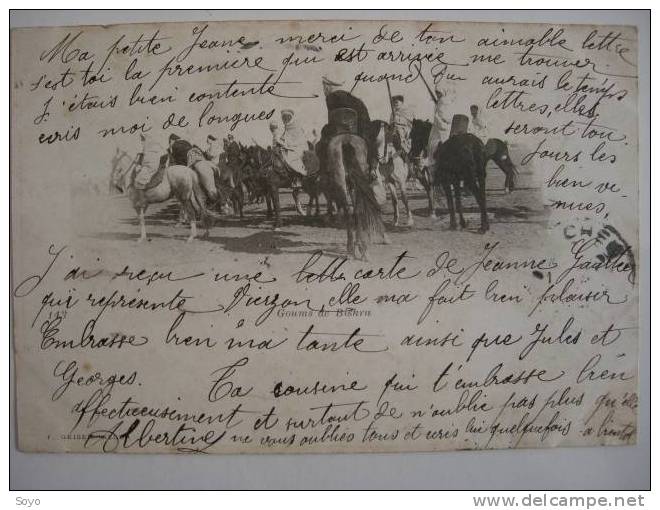 Ma petite Jeane merci de ton aimable lettre
s'est toi la première qui est arrivée me trouver.
j'étais bien contente quand tu aurais le temps
ecris moi de longues lettres, elles
seront tou
jours les
bien ve-
nues,
J'ai reçu une lettre carte de Jeanne
qui represente Vierzon, elle ma fait bien plaisir
143 Goums de Biskra
Embrasse bien ma tante ainsi que Jules et
Georges. Ta cousine qui t'embrasse bien
affectueusement et surtout de n'oublie pas plus qu'elle
Albertine ne vous oublies tous et ecris lui quelquefois a bientot
J. GEISER
Soyo
delcampe.net